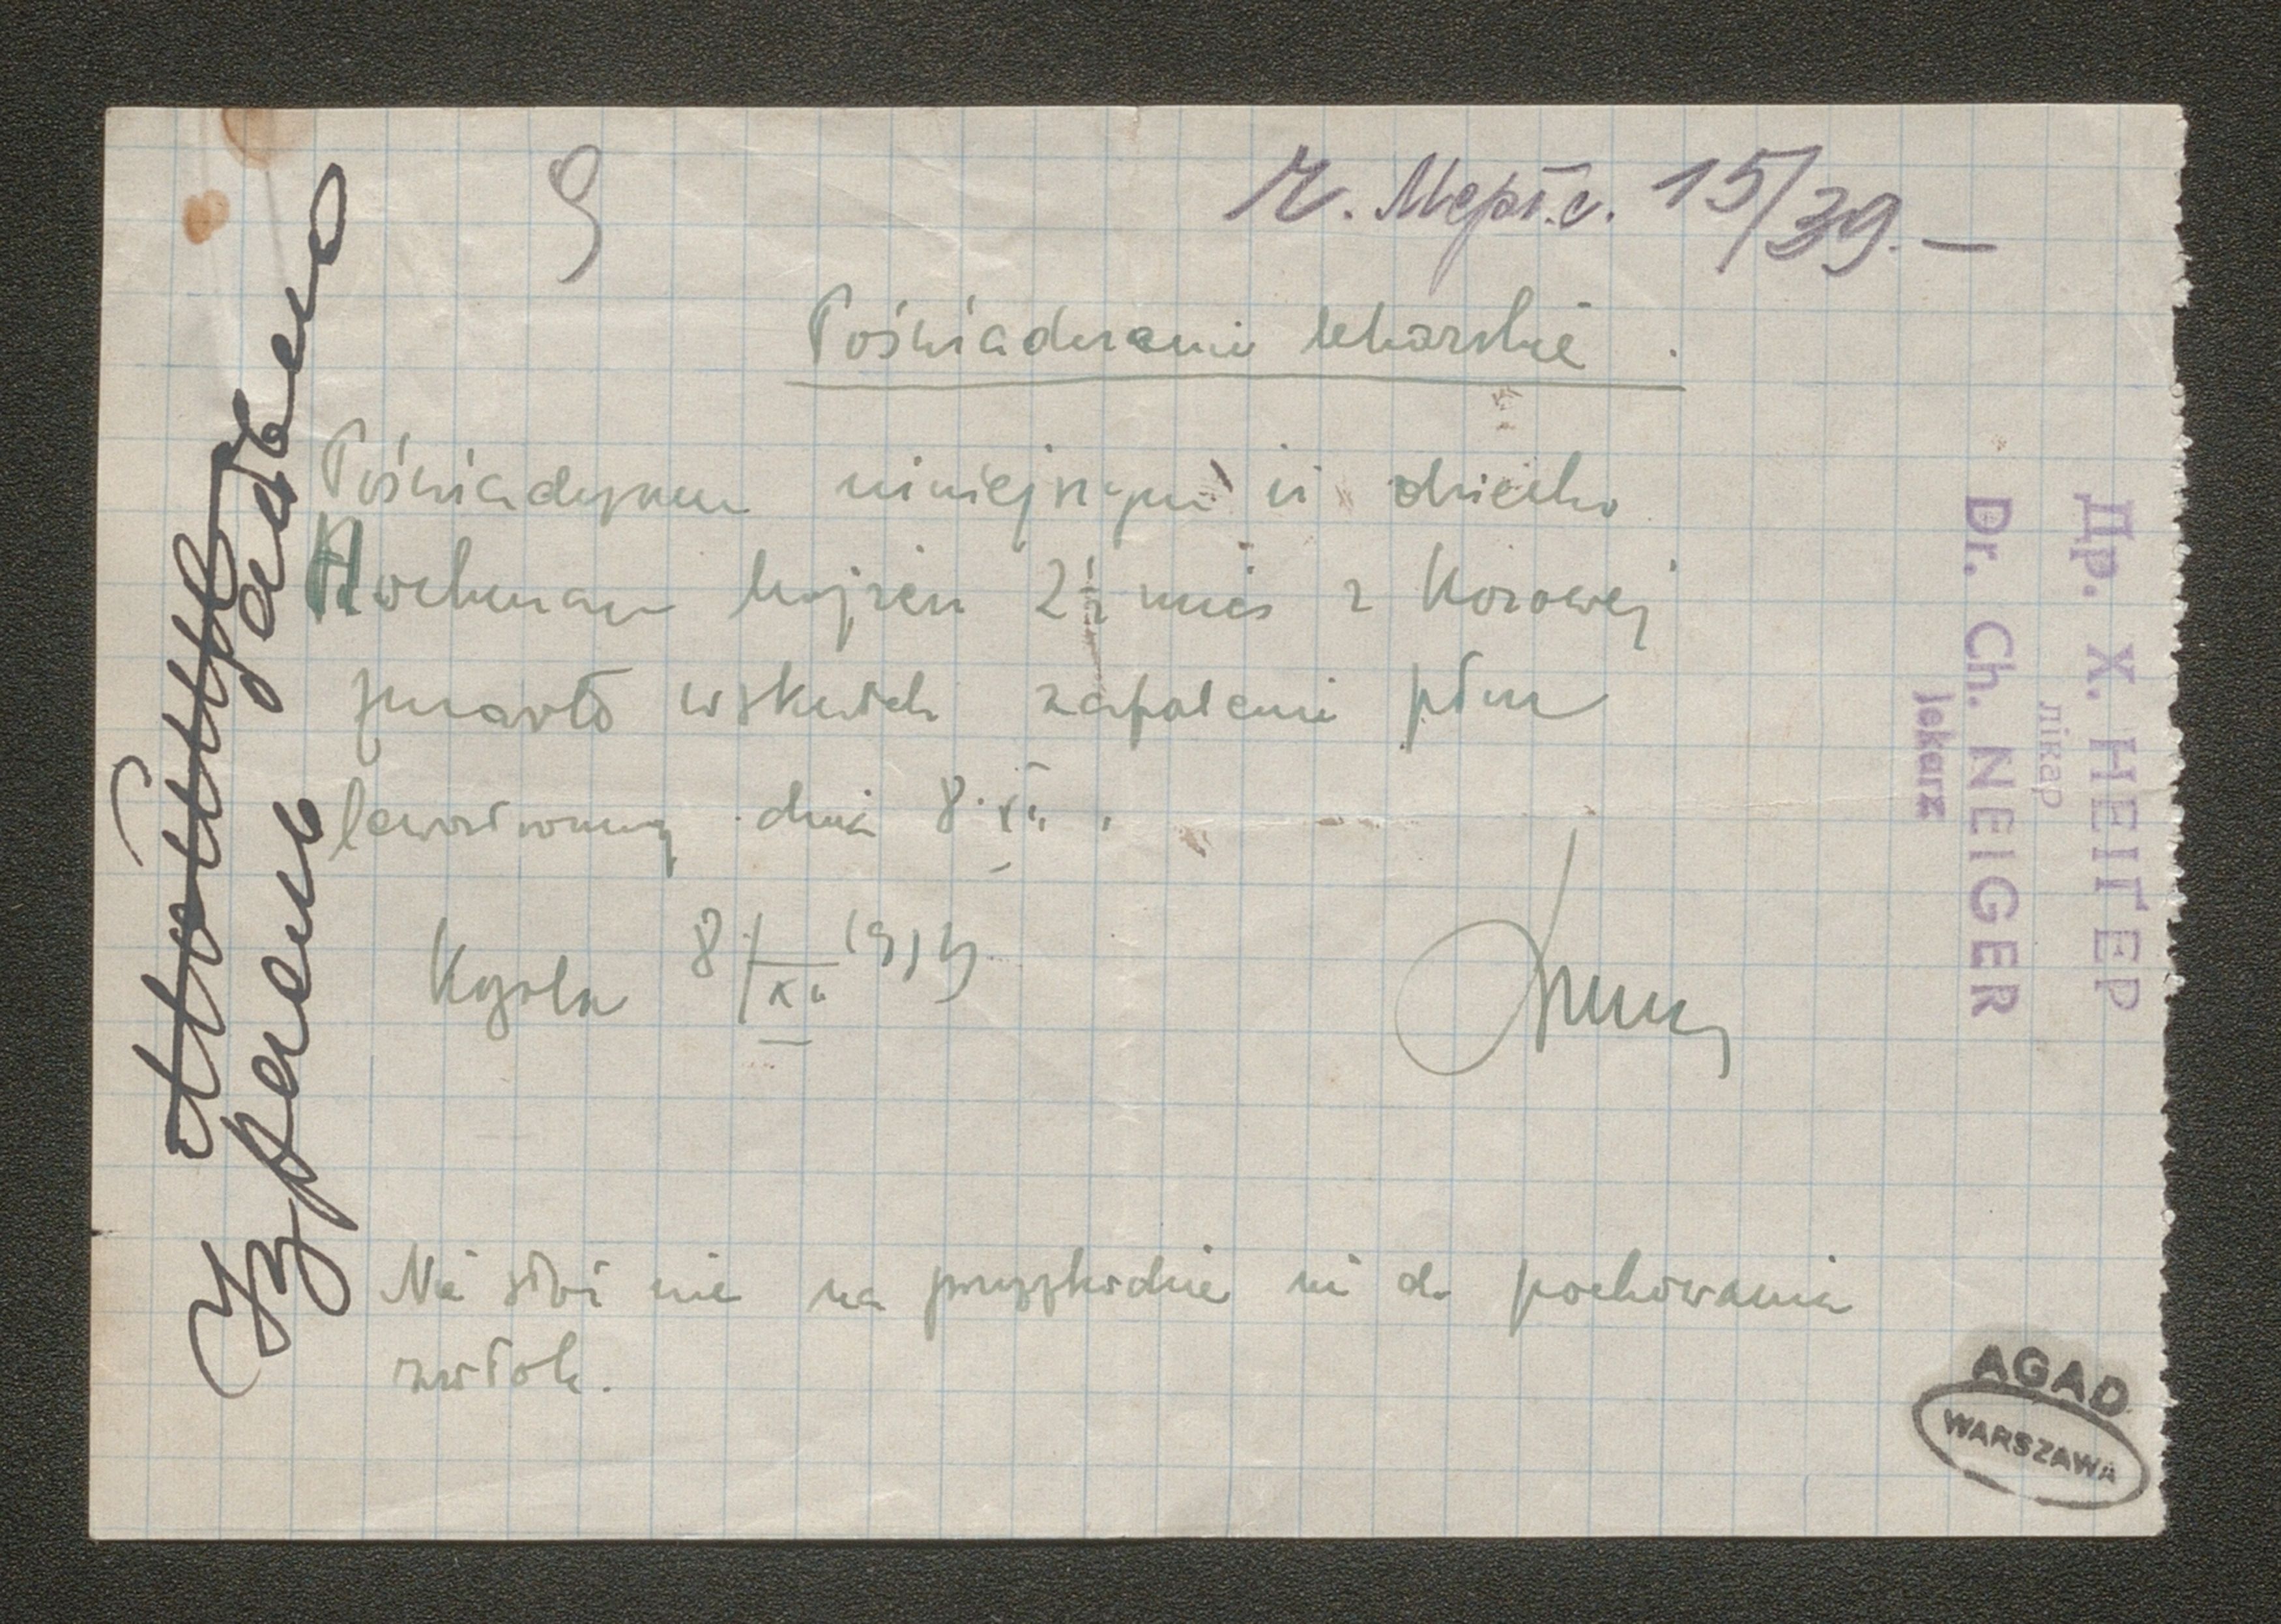 9
Ч. Мерт.с. 15/39.—
Poświadczenie lekarskie.
Poświadczam niniejszym iż dziecko
Hochman Mojżesz 2½ mies z Kozowej
zmarło wskutek zapalenia płuc
lewostronnej dnia 8.XII.
8/XII 1939
Nie stoi nic na przeszkodzie do pochowania
zwłok.
Др. Х. НЕІҐЕР
лікар
Dr. Ch. NEIGER
lekarz
AGAD
WARSZAWA